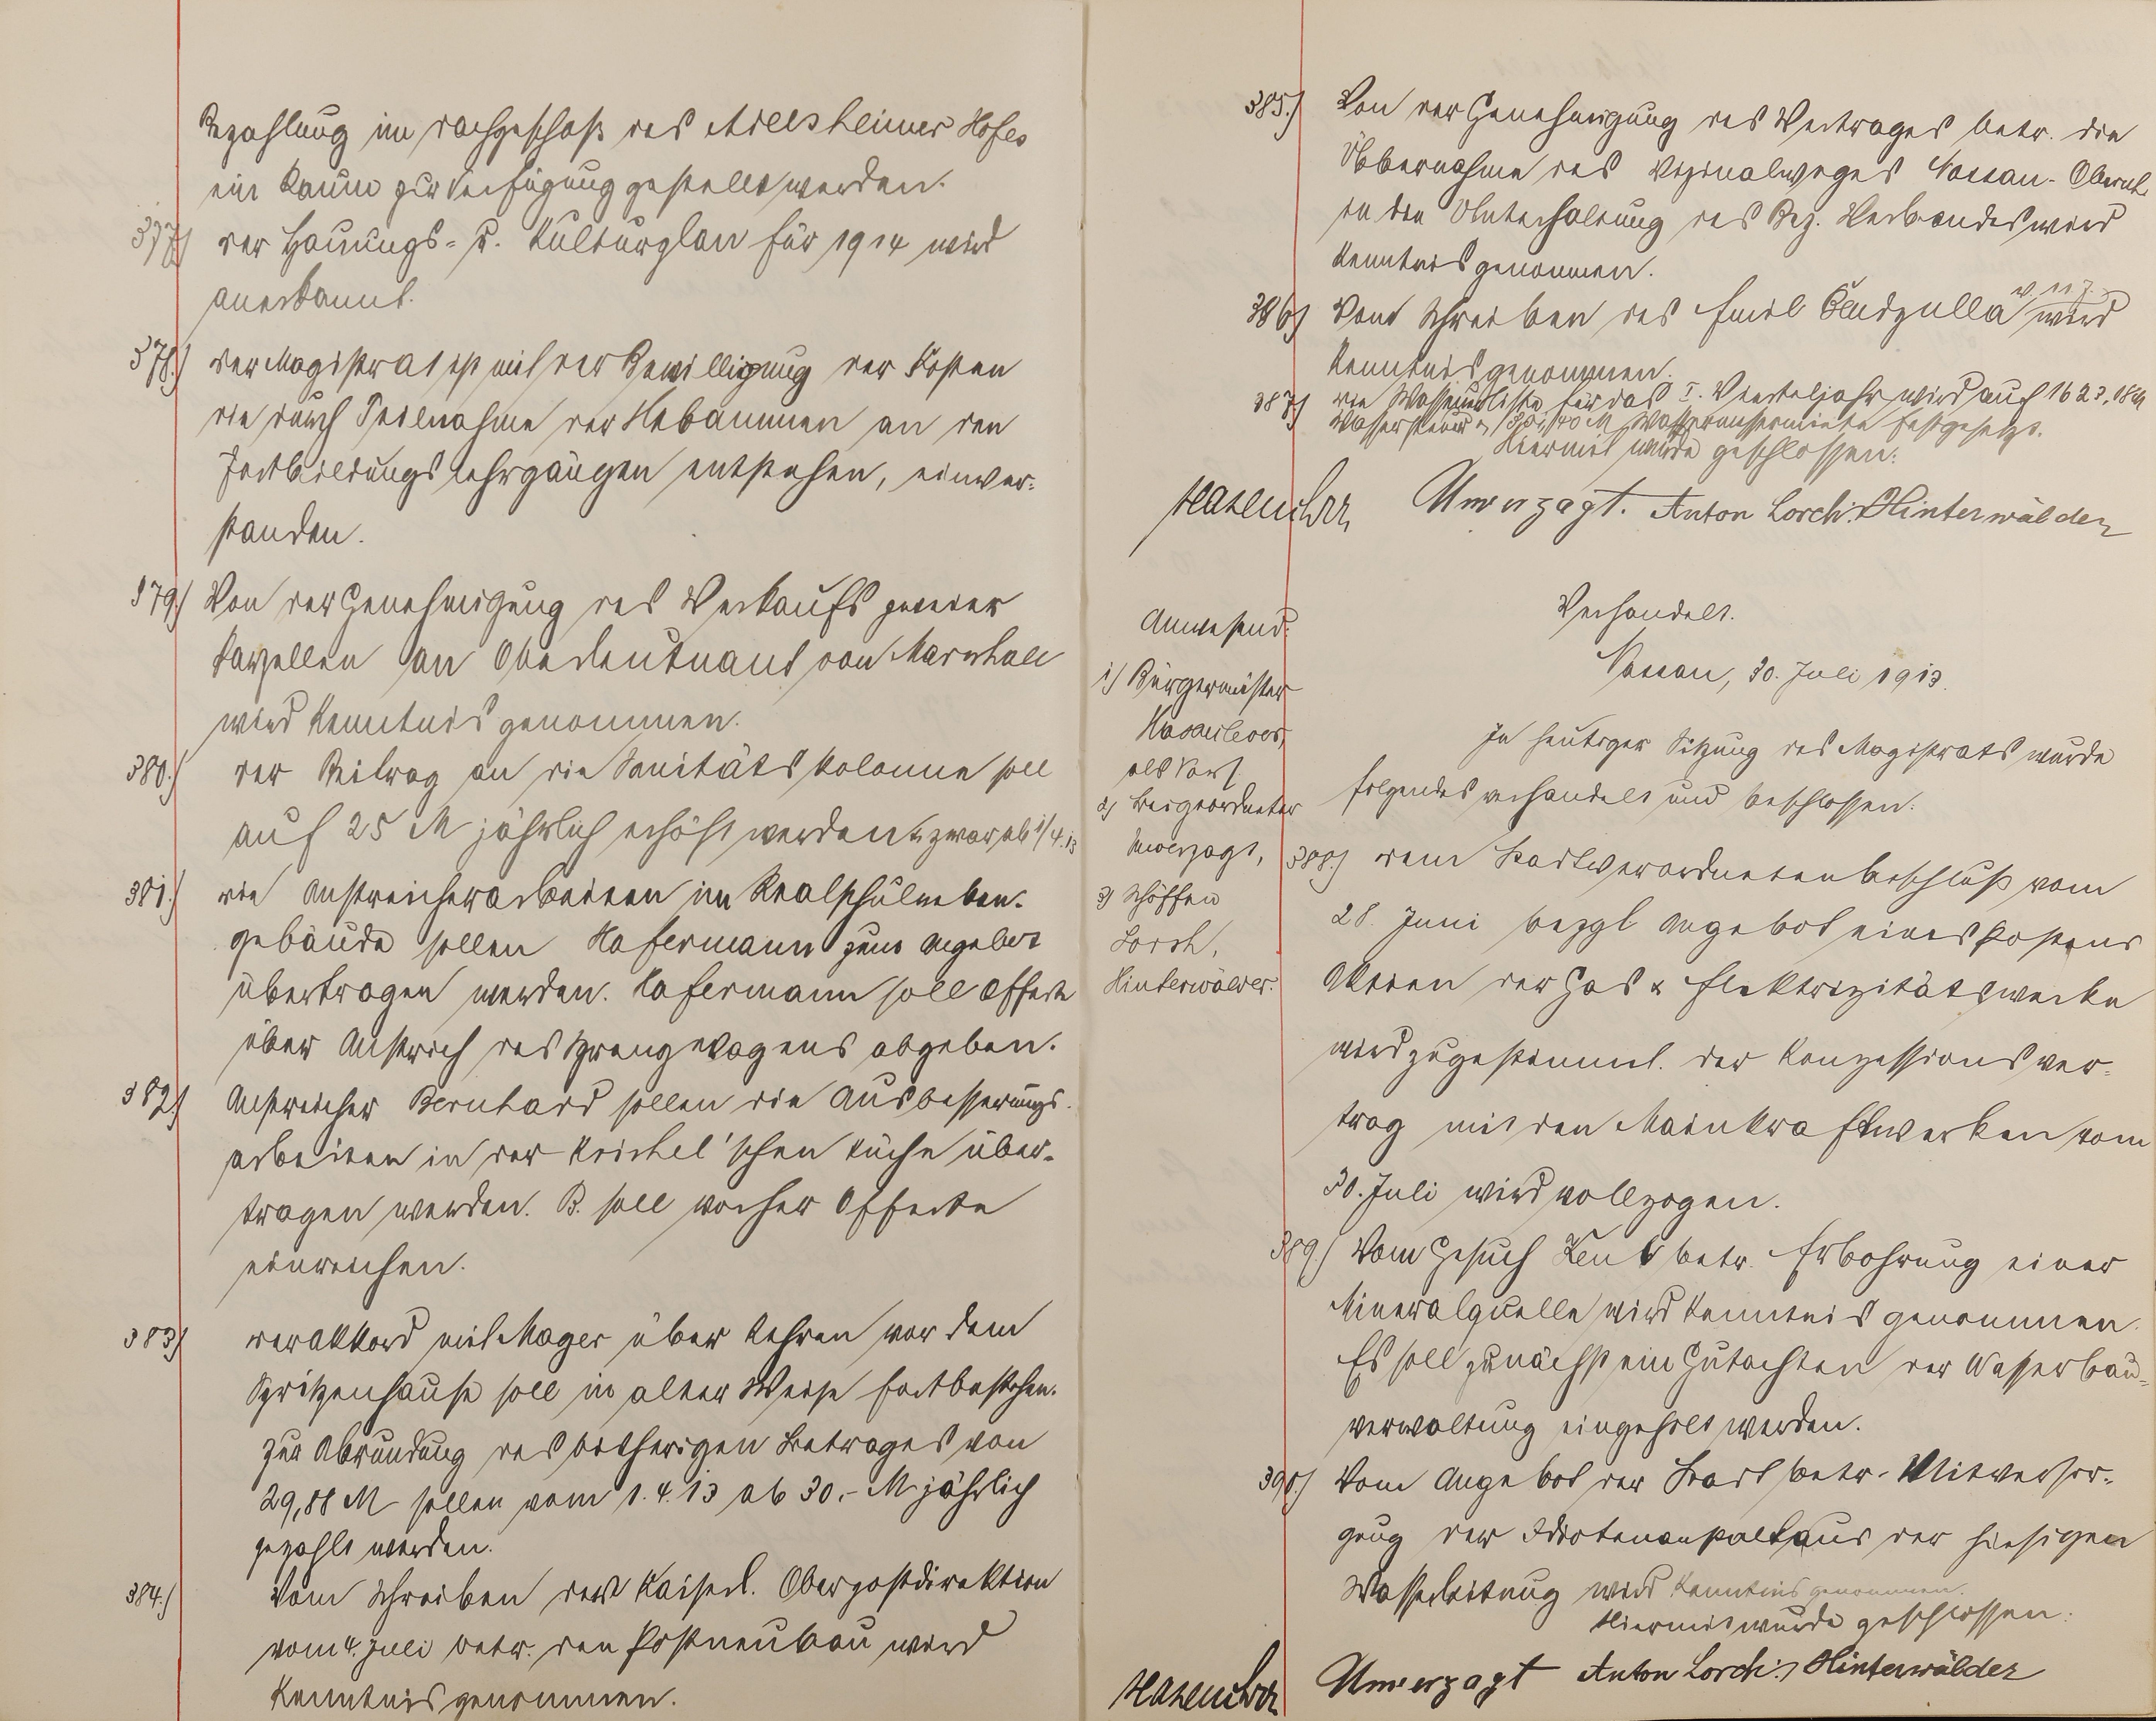 Bezahlung im Dachgeschoß des Adelsheimer Hofes
ein Raum zur Verfügung gestellt werden.
377.) Der Hauungs- u. Kulturplan für 1914 wird
anerkannt.
378.) Der Magistrat ist mit der Bewilligung der Kosten
die durch Teilnahme der Hebammen an den
Fortbildungslehrgängen entstehen, einver-
standen.
379.) Von der Genehmigung des Verkaufs zweier
Parzellen an Oberleutnant von Marschall
wird Kenntnis genommen.
380.) Der Beitrag an die Sanitätskolonne soll
auf 25 M jährlich erhöht werden u. zwar ab 1/4.13
381.) Die Anstreicherarbeiten im Realschulneben-
gebäude sollen Hafermann zum Angebot
übertragen werden. Hafermann soll Offerte
über Anstrich des Sprengwagens abgeben.
382.) Anstreicher Bernhard sollen die Ausbesserungs-
arbeiten in der Krichel'schen Küche über-
tragen werden. B. soll vorher Offerte
einreichen.
383.) Der Akkord mit Mager über Kehren vor dem
Spritzenhause soll in alter Weise fortbestehen.
Zur Abrundung des bisherigen Betrages von
29,88 M sollen vom 1.4.13 ab 30,- M jährlich
gezahlt werden.
384.) Vom Schreiben der Kaiserl. Oberpostdirektion
vom 4. Juli betr. den Postneubau wird
Kenntnis genommen.
385.) Von der Genehmigung des Vertrages betr. die
Übernahme des Vizinalweges Nassau-
in die Unterhaltung des Bez. Verbandes wird
Kenntnis genommen.
386.) Vom Schreiben des Emil wird
Kenntnis genommen.
387.) Die für das I. Vierteljahr wird auf
Wassermessermiete festgesetzt.
Hiermit wurde geschlossen.
Hasenclever Unverzagt. Anton Lorch. Hinterwälder
Verhandelt.
Nassau, 30. Juli 1913.
Anwesend:
1.) Bürgermeister
Hasenclever,
als Vors.
2.) Beigeordneter
Unverzagt,
3.) Schöffen
Lorch,
Hinterwälder.
In heutiger Sitzung des Magistrats wurde
folgendes verhandelt und beschlossen:
388.) Dem Stadtverordnetenbeschluß vom
28. Juni bezgl Angebot eines Postens
Aktien der Gas & Elektrizitätswerke
wird zugestimmt. Der Konzessionsver-
trag mit den Mainkraftwerken vom
30. Juli wird vollzogen.
389.) Vom Gesuch betr. Erbohrung einer
Mineralquelle wird Kenntnis genommen.
Es soll zunächst ein Gutachten der Wasserbau-
verwaltung eingeholt werden.
390.) Vom Angebot der Stadt betr. Mitversor-
gung der Idiotenanstalt aus der hiesigen
Wasserleitung wird Kenntnis genommen.
Hiermit wurde geschlossen:
Hasenclever Unverzagt Anton Lorch. Hinterwälder